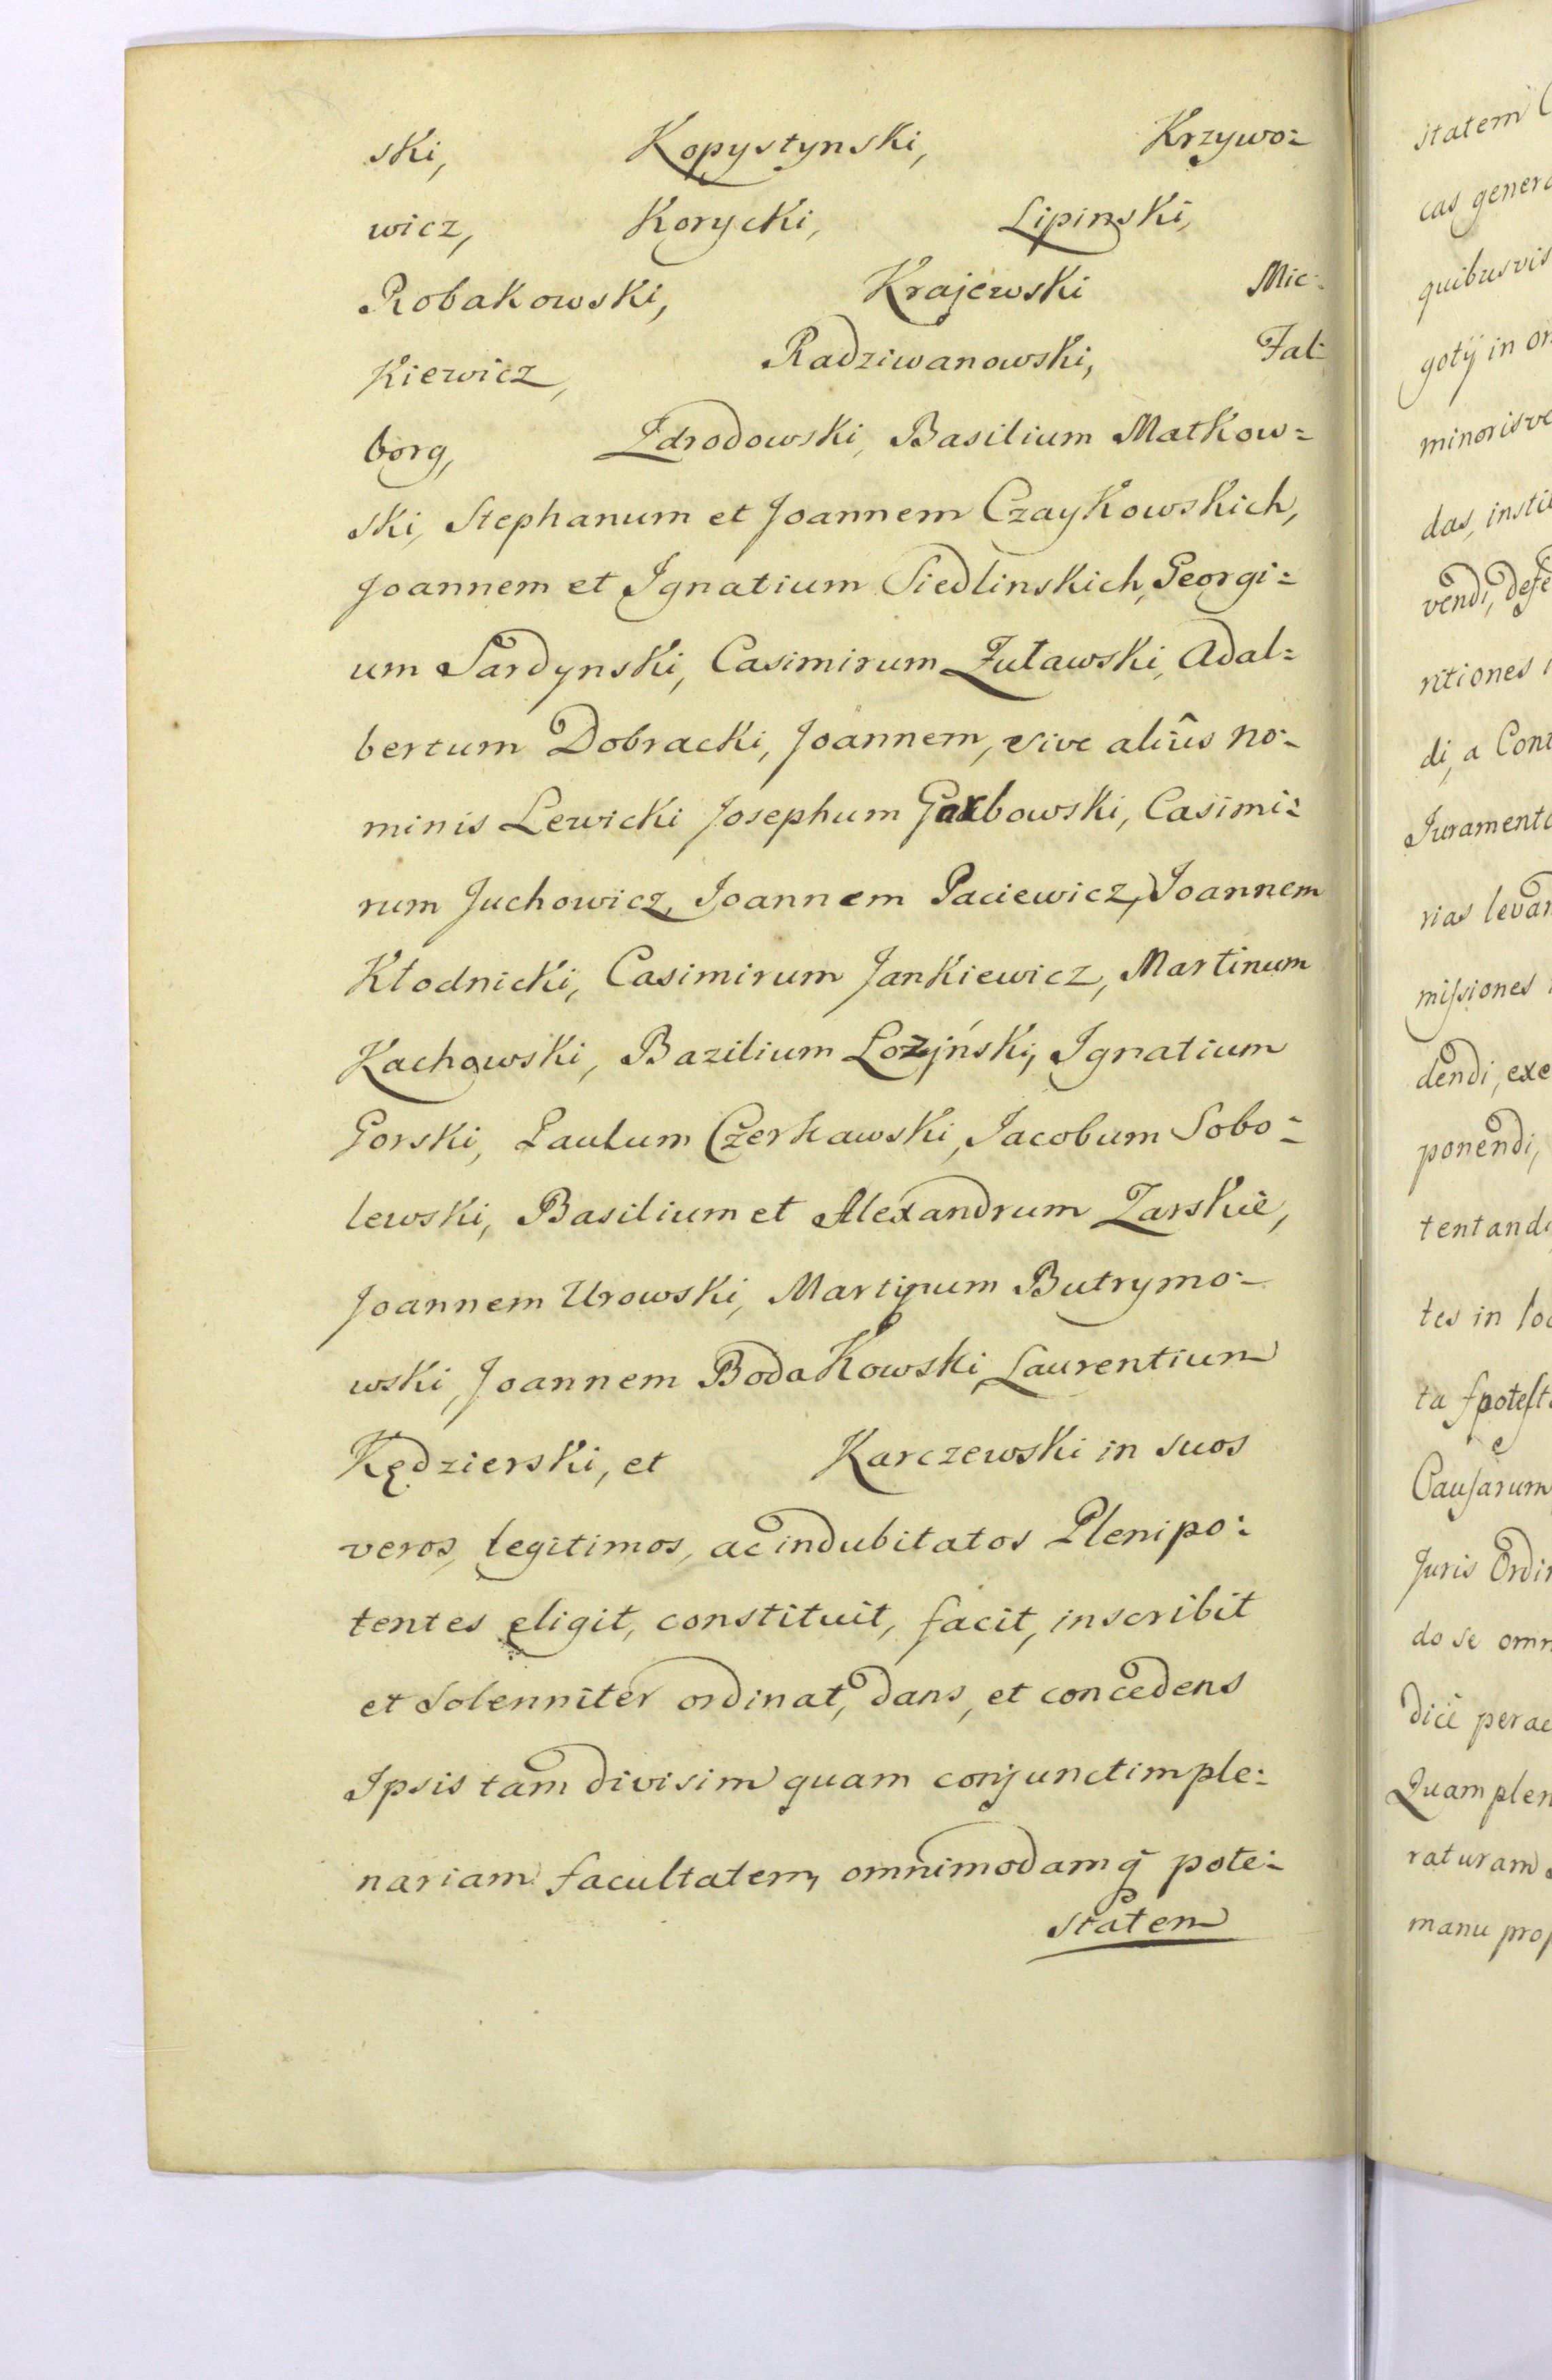 ski, Kopystynski, Krzywo=
wicz, Korycki, Lipinski,
Robakowski, Krajewski Mic=
kiewicz, Radziwanowski, Fal=
borg, Zdrodowski, Basilium Matkow=
ski, Stephanum et Joannem Czaykowskich,
Joannem et Ignatium Siedlinskich, Georgi=
um Sardynski, Casimirum Zuławski, Adal=
bertum Dobracki, Joannem, sive aliûs no=
minis Lewicki Josephum Garbowski, Casimi=
rum Juchowicz, Joannem Paciewicz, Joannem
Kłodnicki, Casimirum Jankiewicz, Martinum
Kachowski, Bazilium Łozijński, Ignatium
Gorski, Paulum Czerkawski, Jacobum Sobo=
lewski, Basilium et Alexandrum Zarskie,
Joannem Urowski, Martinum Butrymo=
wski, Joannem Bodakowski, Laurentium
Kędzierski, et Karczewski in suos
veros, legitimos, ac indubitatos Plenipo=
tentes eligit, constituit, facit, inscribit
et Solenniter ordinat, dans, et concedens
Ipsis tam divisim quam conjunctim ple=
nariam facultatem, omnimodamq̃ pote=
statem
statem
cas genera
quibusvis
gotij in
minorisve
das, insti
vendi, defe
ritiones
di, a Cont
Juramenta
rias levan
missiones
dendi, exe
ponendi,
tentandi
tes in loc
ta
Causarum
Juris Ordin
do se omn
dicî perac
Quam plen
raturam
manu prop